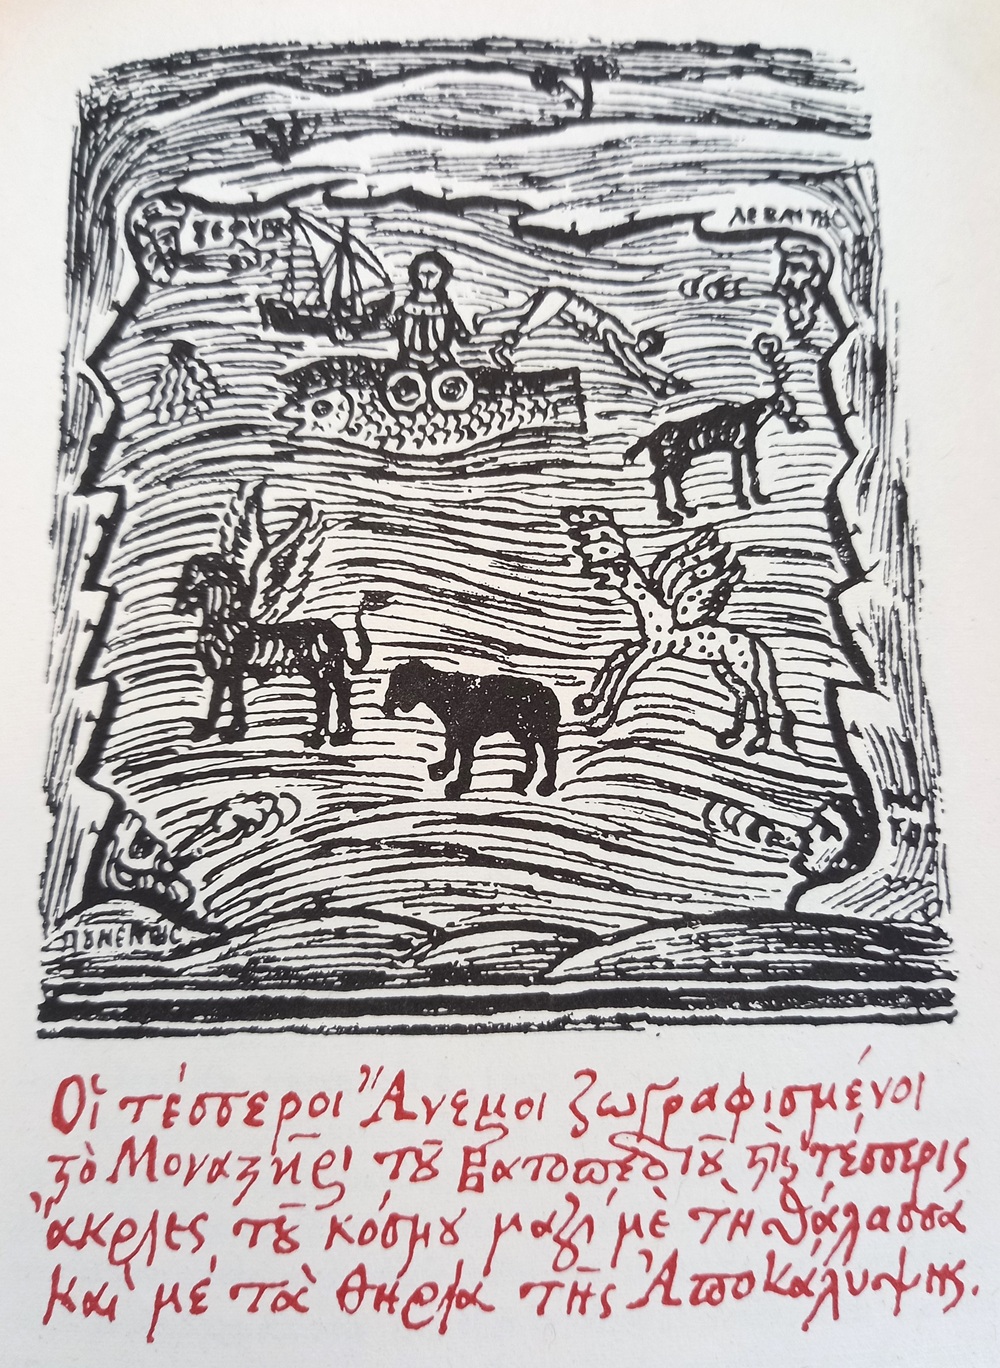 ΛΕΒΑΝΤΗΣ
ΠΟΝΕΝΤΕΣ
Οἱ τέσσεροι Ἄνεμοι ζωγραφισμένοι
τὸ Μοναστῆρι τοῦ Βατοπεδίου τὶς τέσσερις
ἄκριες τοῦ κόσμου μαζὶ μὲ τὴ θάλασσα
καὶ μὲ τὰ θηρία τῆς Ἀποκάλυψης.